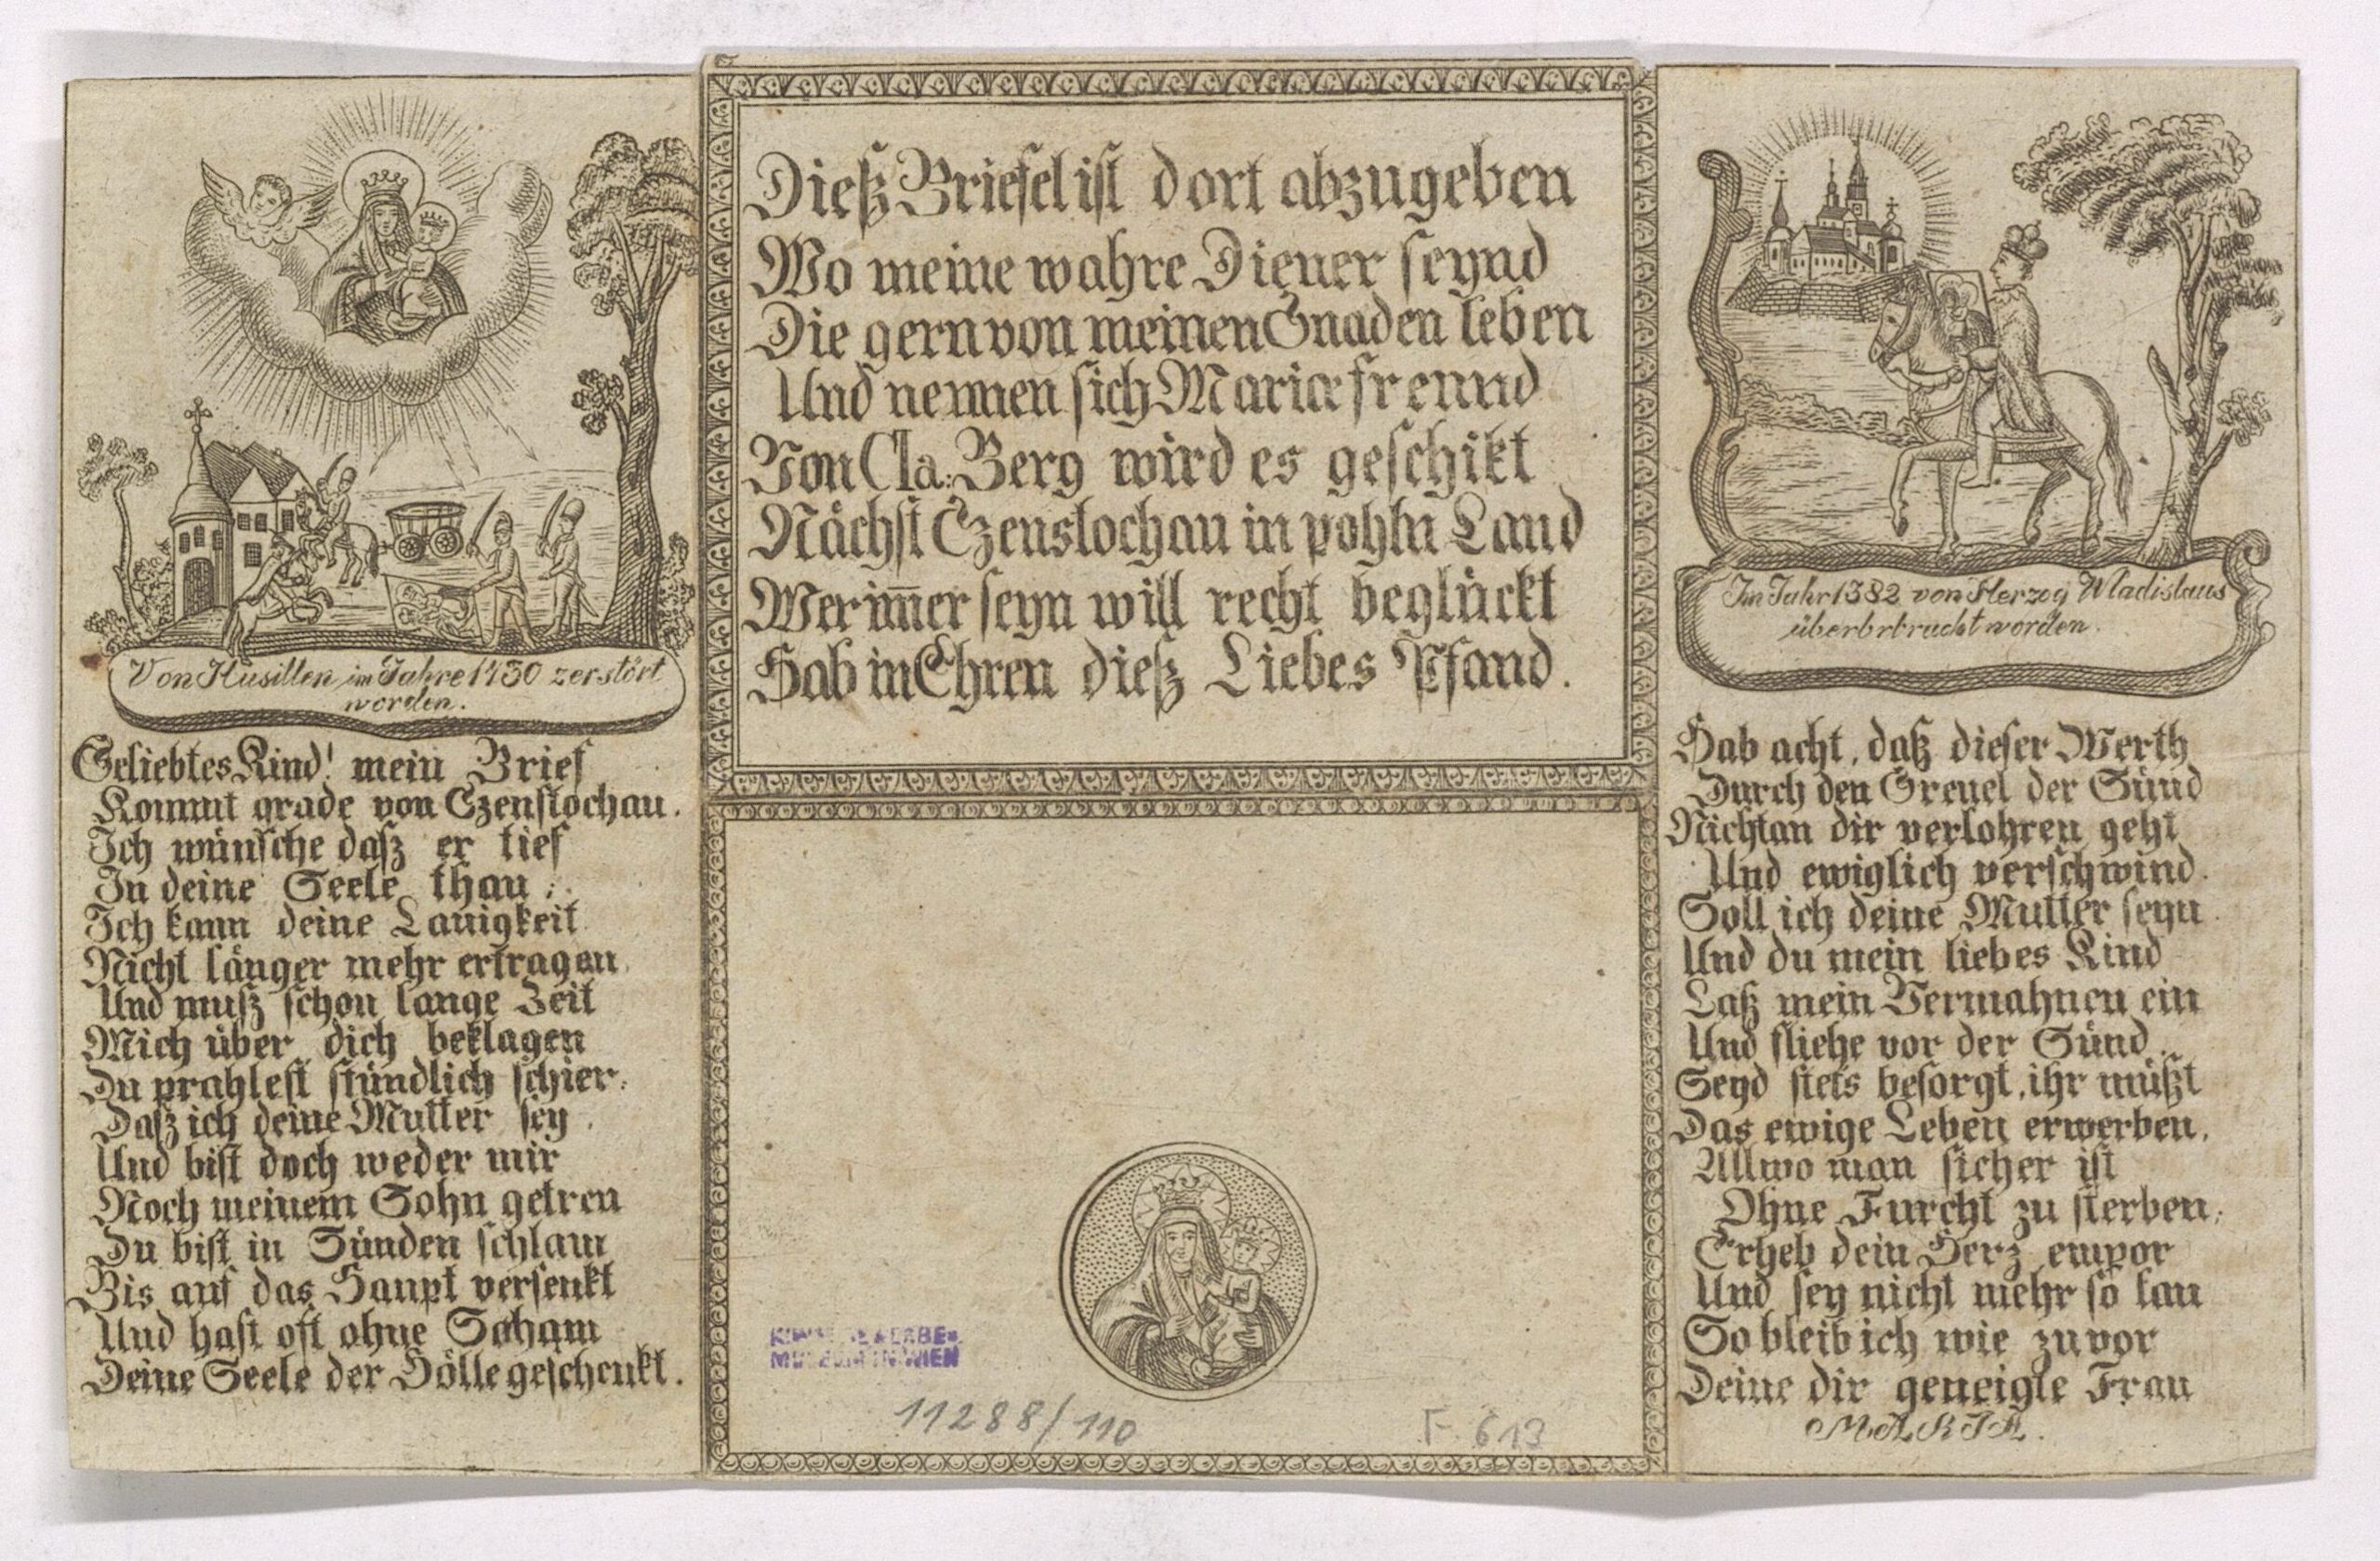 Von Husitten im Jahre 1430 zerstört
worden.
Geliebtes Kind! mein Brief
Kommt grade von Czenstochau.
Ich wünsche daß er tief
In deine Seele thau:
Ich kann deine Lauigkeit
Nicht länger mehr ertragen
Und muß schon lange Zeit
Mich über dich beklagen
Du prahlest stündlich schier:
Daß ich deine Mutter sey.
Und bist doch weder mir
Noch meinem Sohn getreu
Du bist in Sünden schlam
Bis auf das Haupt versenkt
Und hast oft ohne Scham
Deine Seele der Hölle geschenkt.
Dieß Briefel ist dort abzugeben
Wo meine wahre Diener seynd
Die gern von meinen Gnaden leben
Und nennen sich Mariæ freund
Von Cla: Berg wird es geschikt
Nächst Czenstochau in pohln Land
Wer im̄er seyn will recht beglückt
Hab in Ehren dieß Liebes Pfand.
11288/110
F 613
Im Jahr 1382 von Herzog Wladislaus
überbrbracht worden.
Hab acht, daß dieser Werth
Durch den Greuel der Sünd
Nicht an dir verlohren geht
Und ewiglich verschwind.
Soll ich deine Mutter seyn.
Und du mein liebes Kind
Laß mein Vermahnen ein
Und fliehe vor der Sünd.
Seyd stets besorgt, ihr müßt
Das ewige Leben erwerben,
Allwo man sicher ist
Ohne Furcht zu sterben;
Erheb dein Herz empor
Und sey nicht mehr so lau
So bleib ich wie zuvor
Deine dir geneigte Frau
MARIA.